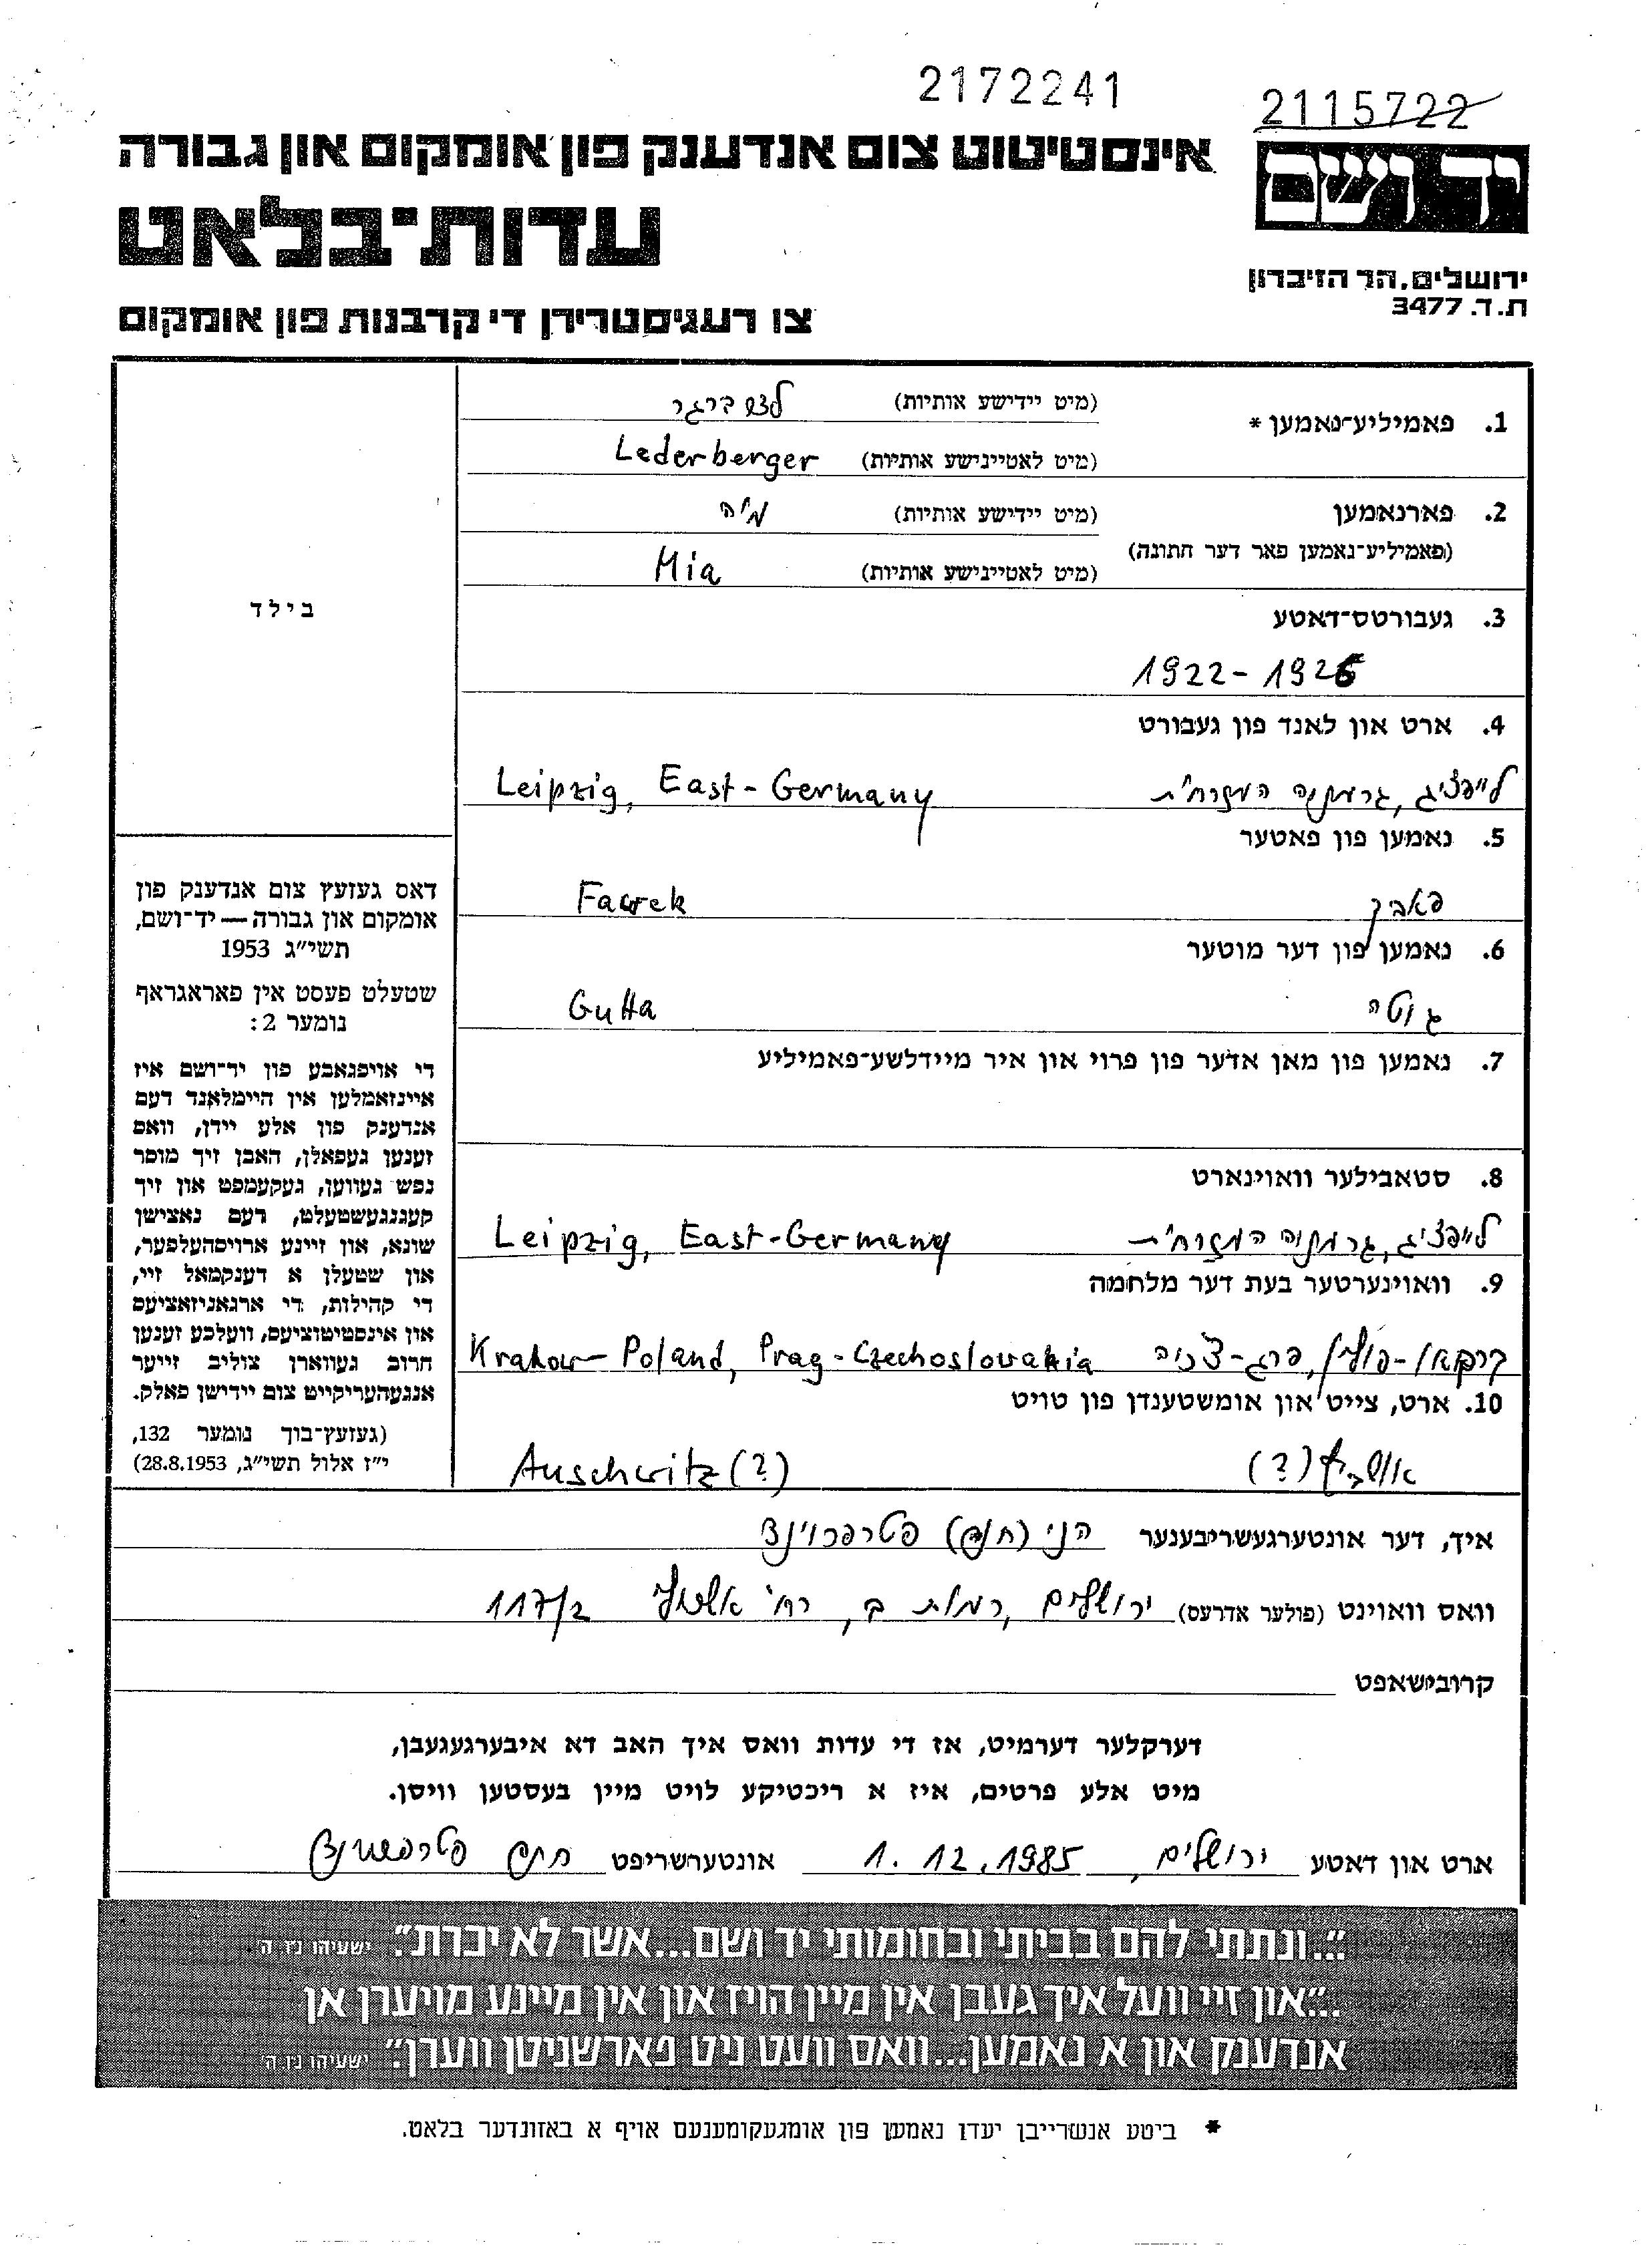 2172241
2115722
יד ושם
אינסטיטוט צום אנדענק פון אומקום און גבורה
עדות־בלאט
צו רעגיסטרירן די קרבנות פון אומקום
ירושלים, הר הזיכרון
ת.ד. 3477
1. פאמיליע־נאמען *
(מיט יידישע אותיות)
(מיט לאטיינישע אותיות) Lederberger
2. פארנאמען
(פאמיליע־נאמען פאר דער חתונה)
(מיט יידישע אותיות) מיה
(מיט לאטיינישע אותיות) Mia
בילד
3. געבורטס־דאטע
1922 - 1926
4. ארט און לאנד פון געבורט
לייפציג, גרמניה המזרחית Leipzig, East-Germany
5. נאמען פון פאטער
פאבק Fawek
6. נאמען פון דער מוטער
גוטה Gutta
7. נאמען פון מאן אדער פון פרוי און איר מיידלשע־פאמיליע
8. סטאבילער וואוינארט
לייפציג, גרמניה המזרחית Leipzig, East-Germany
9. וואוינערטער בעת דער מלחמה
קרקאו - פולין, פרג - צ'כיה Krakow - Poland, Prag - Czechoslovakia
10. ארט, צייט און אומשטענדן פון טויט
אושביץ (?) Auschwitz (?)
דאס געזעץ צום אנדענק פון
אומקום און גבורה — יד־ושם,
תשי״ג 1953
שטעלט פעסט אין פאראגראף
נומער 2:
די אויפגאבע פון יד־ושם איז
איינזאמלען אין היימלאנד דעם
אנדענק פון אלע יידן, וואס
זענען געפאלן, האבן זיך מוסר
נפש געווען, געקעמפט און זיך
קעגנגעשטעלט, דעם נאצישן
שונא, און זיינע ארויסהעלפער,
און שטעלן א דענקמאל זיי,
די קהילות, די ארגאניזאציעס
און אינסטיטוציעס, וועלכע זענען
חרוב געווארן צוליב זייער
אנגעהעריקייט צום יידישן פאלק.
(געזעץ־בוך נומער 132,
י״ז אלול תשי״ג, 28.8.1953)
איך, דער אונטערגעשריבענער הני (חנה)
וואס וואוינט (פולער אדרעס) ירושלים, רמות ב, רח' 117/2
קרובישאפט
דערקלער דערמיט, אז די עדות וואס איך האב דא איבערגעגעבן,
מיט אלע פרטים, איז א ריכטיקע לויט מיין בעסטען וויסן.
ארט און דאטע ירושלים, 1.12.1985 אונטערשריפט חנה
״...ונתתי להם בביתי ובחומותי יד ושם...אשר לא יכרת״. ישעיהו נו, ה
״...און זיי וועל איך געבן אין מיין הויז און אין מיינע מויערן אן
אנדענק און א נאמען...וואס וועט ניט פארשניטן ווערן״. ישעיהו נו, ה
* ביטע אנשרייבן יעדן נאמען פון אומגעקומענעם אויף א באזונדער בלאט.